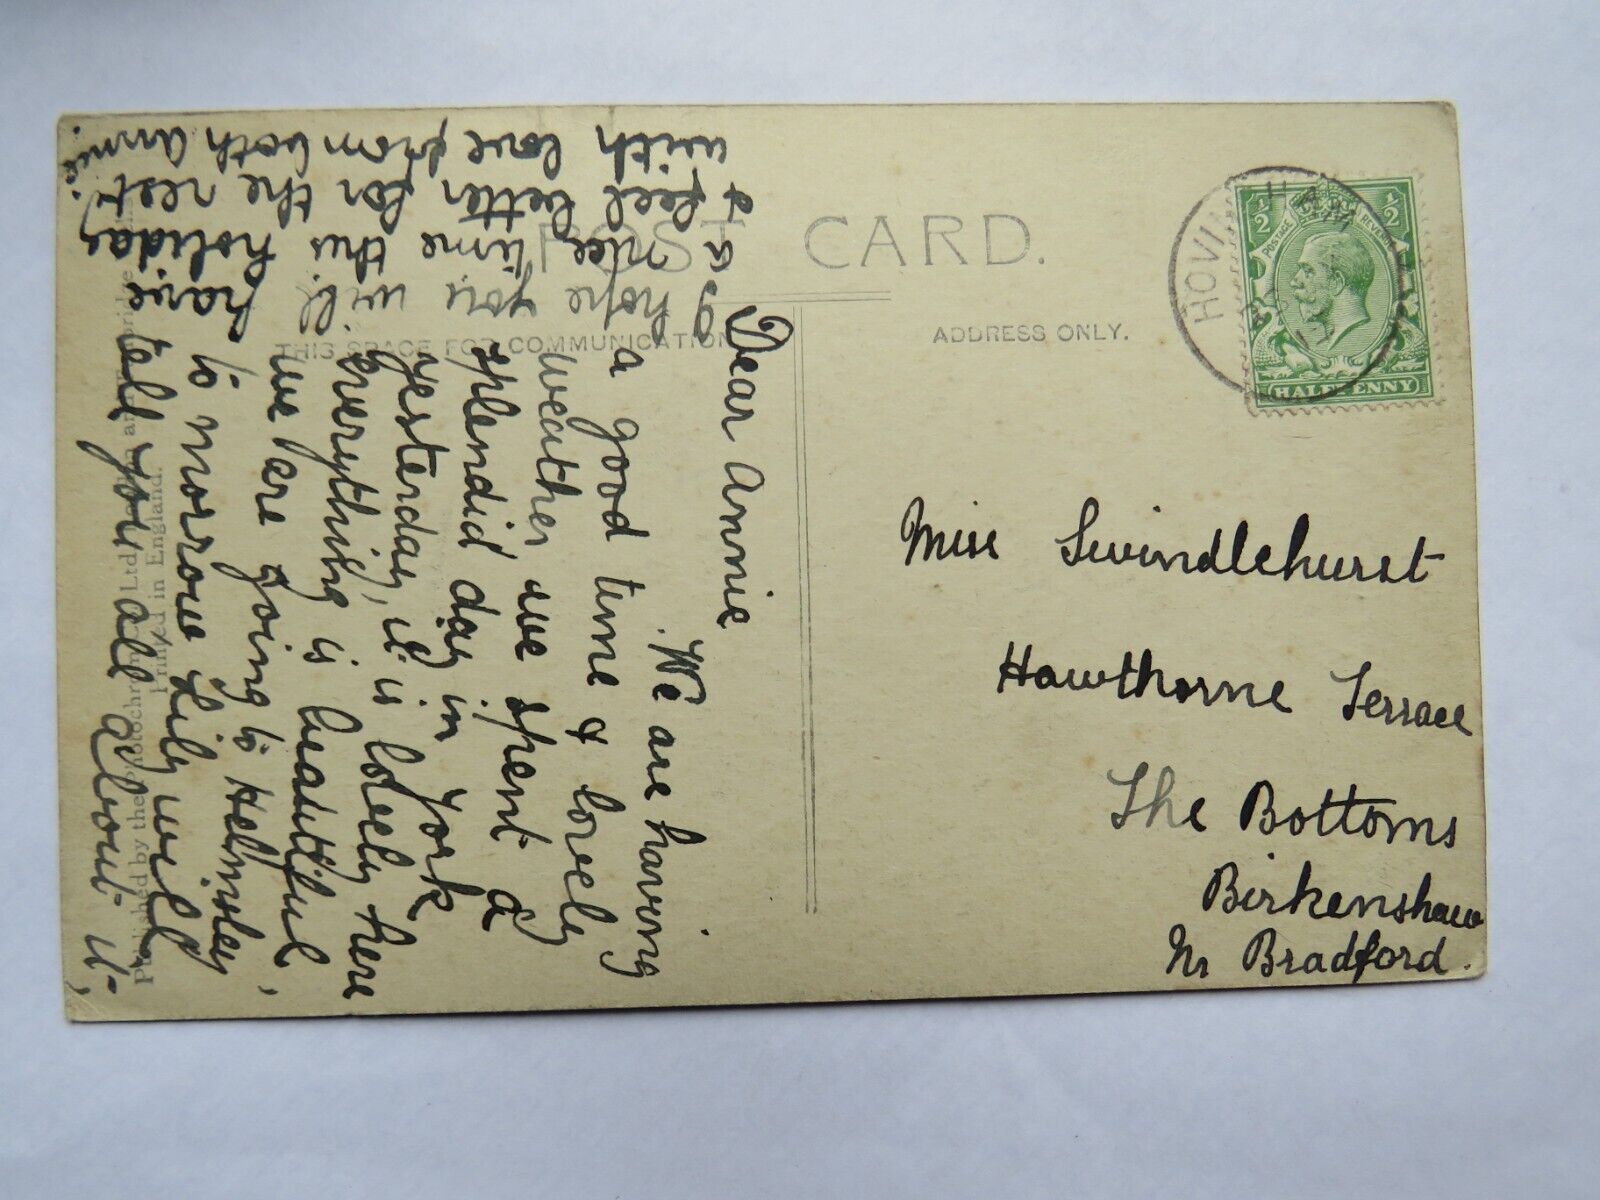 POST CARD.
THIS SPACE FOR COMMUNICATION
ADDRESS ONLY.
HOVIN
POSTAGE REVENUE
½ ½
HALFPENNY
Dear Annie
We are having
a good time & lovely
weather we spent a
splendid day in York
yesterday, it is lovely here
everything is beautiful,
we are going to Helmsley
to morrow Lily will
tell you all about it,
I hope you will have
a nice time this holiday
& feel better for the rest.
with love from both Annie.
Miss Swindlehurst
Hawthorne Terrace
The Bottoms
Birkenshaw
Nr Bradford.
Published by the Photochrom Co. Ltd.
Printed in England.